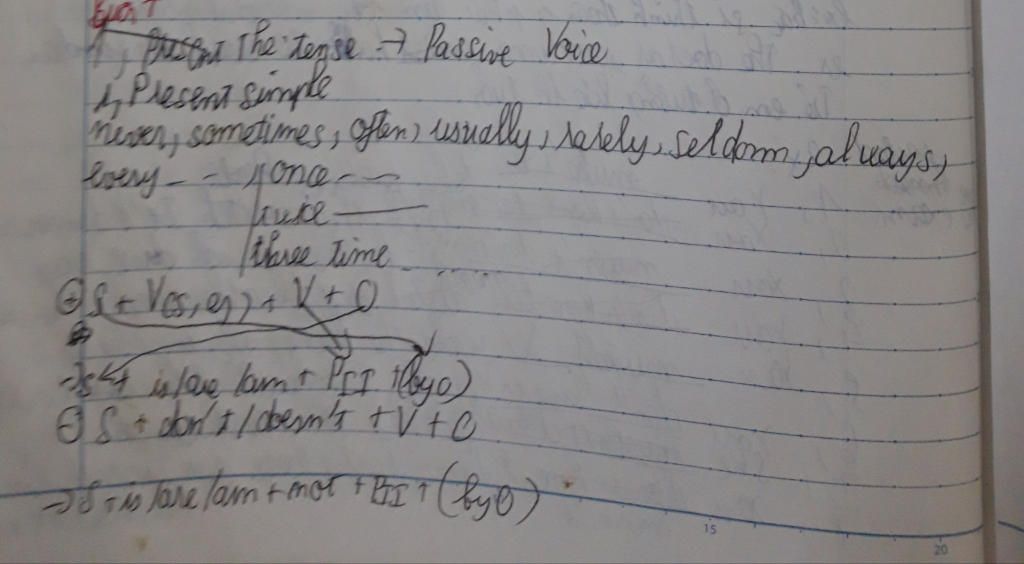 The tense → Passive Voice
1, Present simple
never, sometimes, often, usually, rarely, seldom, always,
every - - / once - -
twice —
three time .....
(+) S + V(s, es) + V + O
→ S + is/are/am + PII + (by O)
(-) S + don't/doesn't + V + O
→ S + is/are/am + not + PII + (by O)
15
20